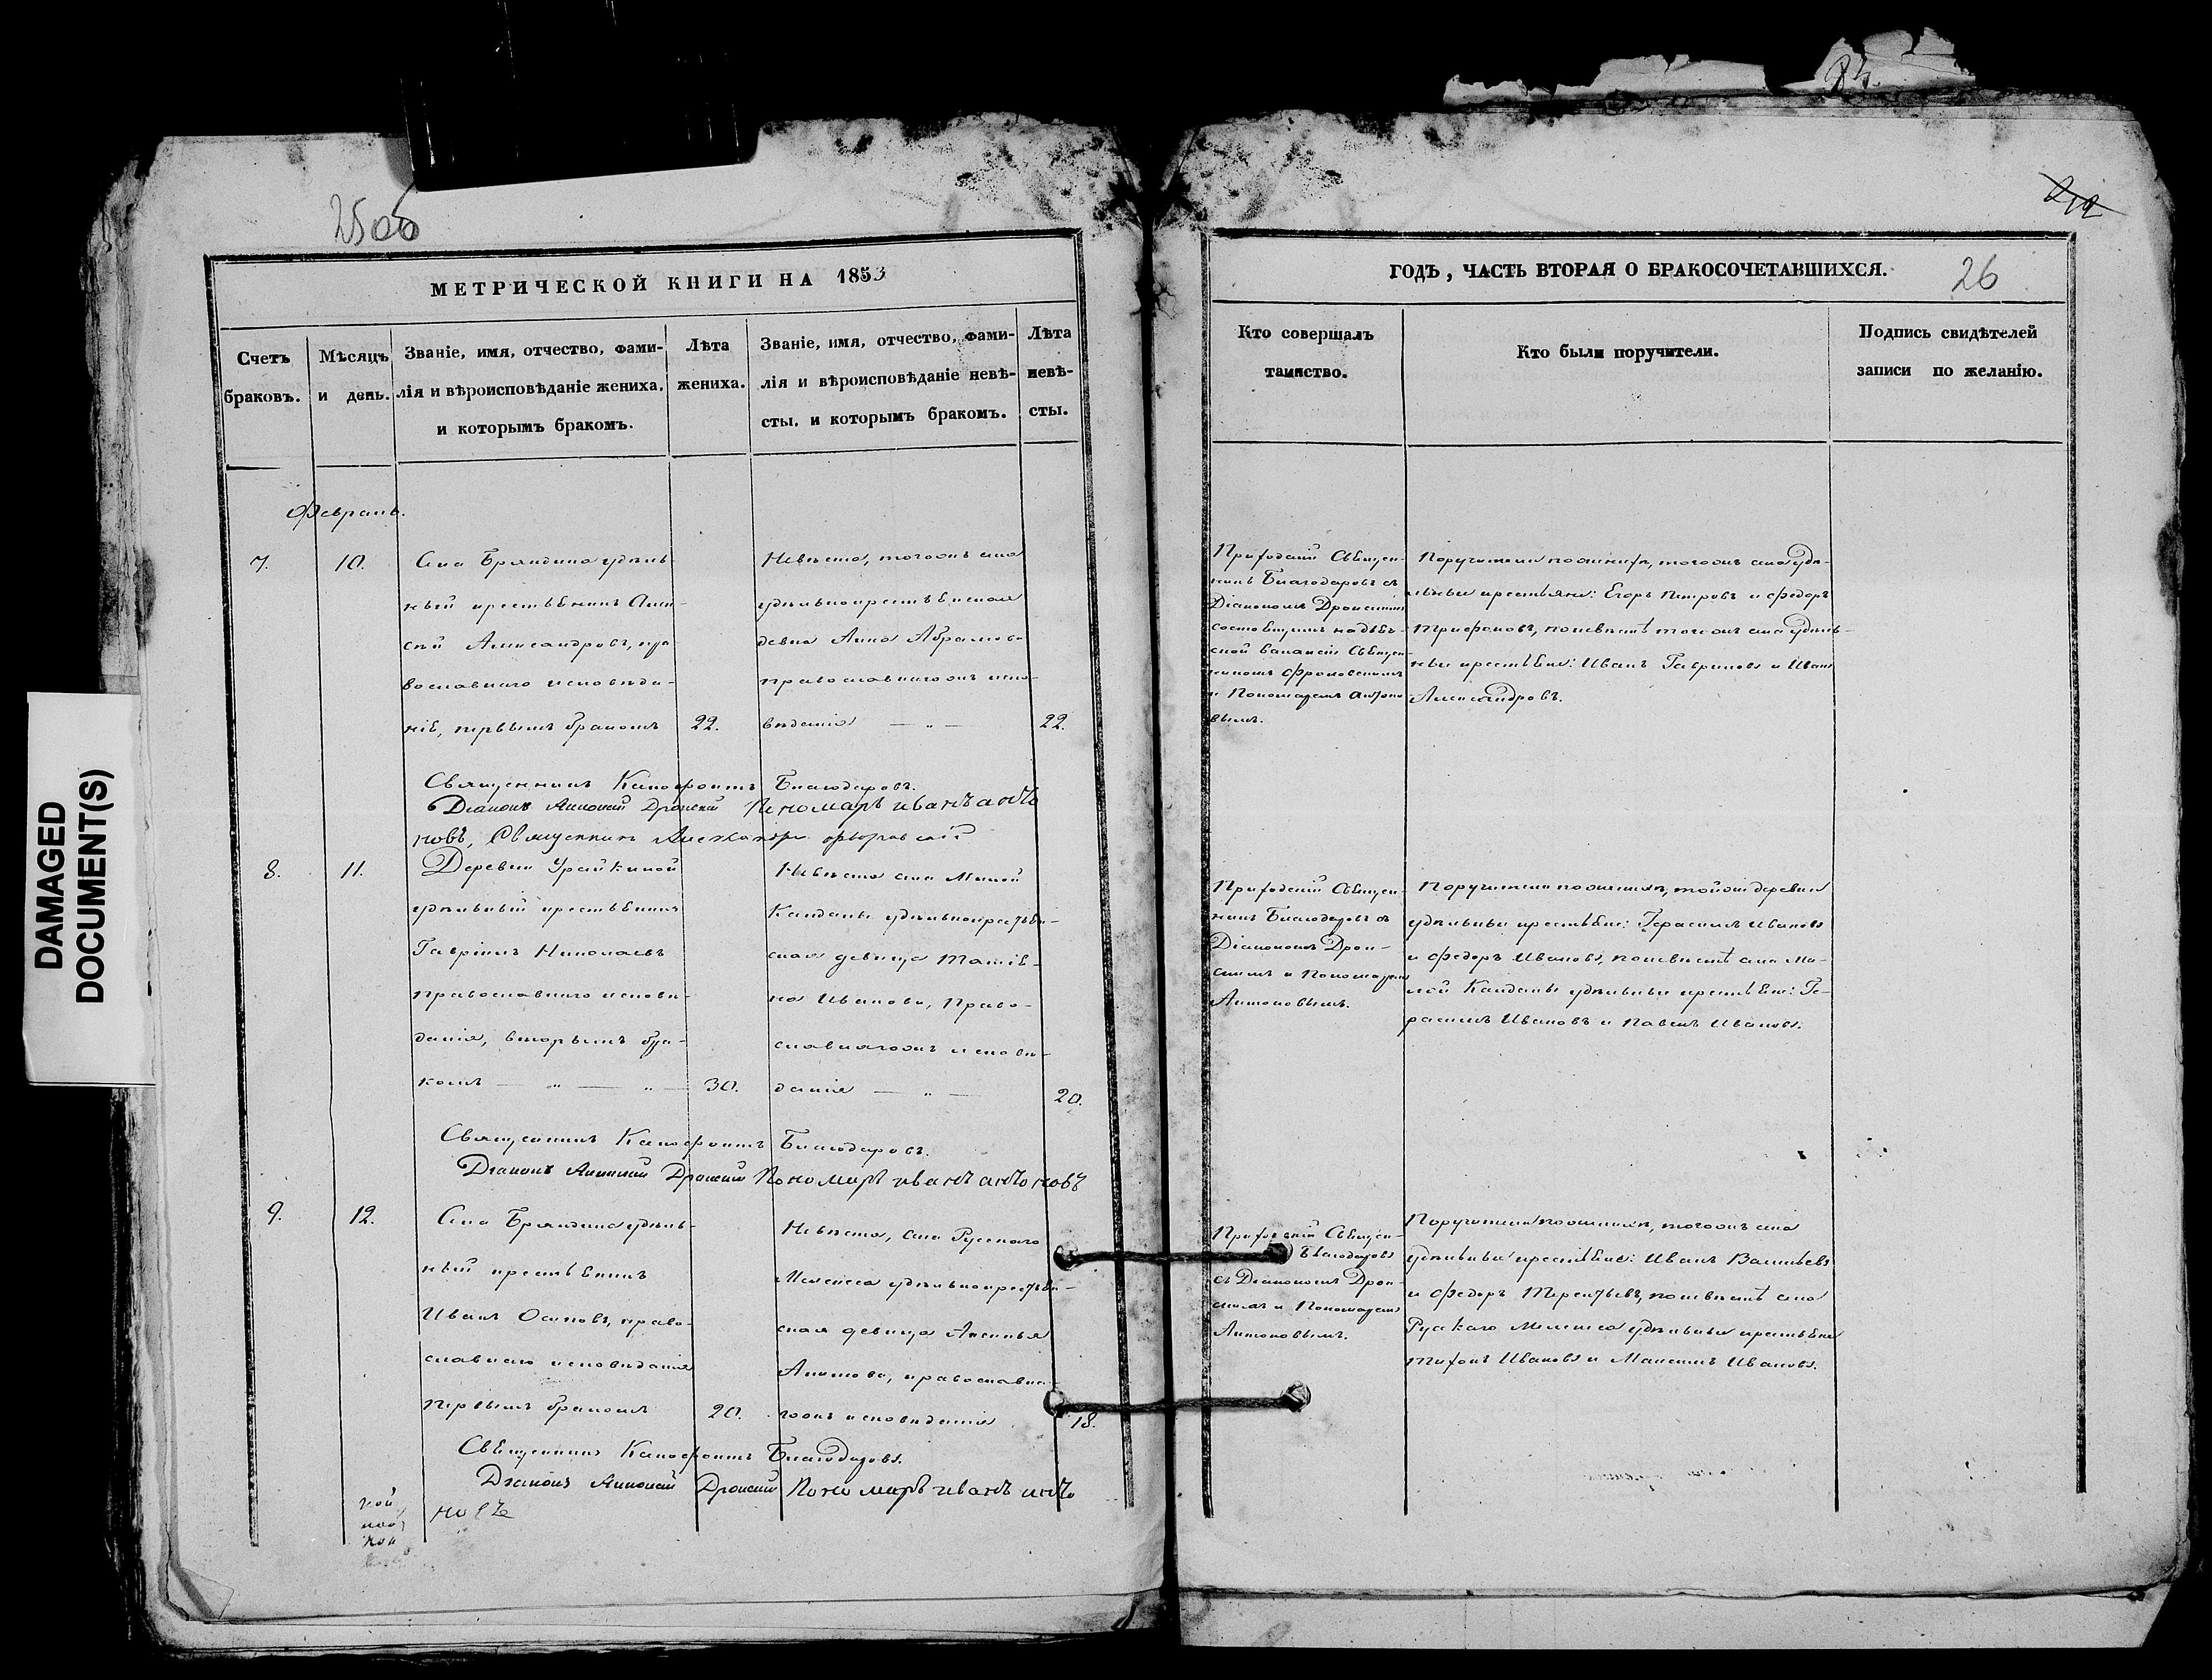 2500
МЕТРИЧЕСКОЙ КНИГИ НА 1853
Счетъ браковъ.
Мѣсяцъ и день.
Званіе, имя, отчество, фами-
лія и вѣроисповѣданіе жениха,
и которымъ бракомъ.
Лѣта
жениха.
Званіе, имя, отчество, фами-
лія и вѣроисповѣданіе невѣ-
сты, и которымъ бракомъ.
Лѣта
невѣ-
сты.
Февраль.
7.
10.
Села Бряндина удѣль
ный крестьянинъ Алек-
сѣй Александровъ, пра
вославнаго исповѣда-
нія, первымъ бракомъ
22.
Невѣста, тогожъ села
удѣльнокрестьянская
девка Анна Абрамова
православнагожъ испо-
вѣданія — „ —
22.
Священникъ Ксенофонтъ Благодаровъ.
Діаконъ Алексѣй Дронскій Пономарь иванъ анто
новъ, Священникъ Александръ
8.
11.
Деревни Урайкиной
удѣльный крестьянинъ
Гавріилъ Николаевъ
православнаго исповѣ-
данія, вторымъ бра-
комъ — „ — „ —
30.
Невѣста села Малой
Кандалы удѣльнокрестьян-
ская девица Татія-
на Иванова, Право-
славнагожъ исповѣ-
данія — „ —
20.
Священникъ Ксенофонтъ Благодаровъ.
Діаконъ Алексѣй Дронскій Пономарь иванъ антоновъ
9.
12.
Села Бряндина удѣль-
ный крестьянинъ
Иванъ Осиповъ, право-
славнаго исповѣданія
первымъ бракомъ
20.
Невѣста, села Русскаго
Мелекеса удѣльнокрестьян-
ская девица Аксинья
православна-
гожъ исповѣданія
18.
Священникъ Ксенофонтъ Благодаровъ.
Діаконъ Алексѣй Дронскій Пономарь иванъ анто
новъ
212
ГОДЪ, ЧАСТЬ ВТОРАЯ О БРАКОСОЧЕТАВШИХСЯ.
26
Кто совершалъ
таинство.
Кто были поручители.
Подпись свидѣтелей
записи по желанію.
Приходскій Священ-
никъ Благодаровъ съ
Діакономъ Дронскимъ
состоящимъ на діакон-
ской вакансіи Священ-
никомъ
и Пономаремъ Антоно
вымъ.
Поручители по женихѣ, тогожъ села удѣ-
льные крестьяне: Егоръ Петровъ и Федоръ
Трифоновъ, по невѣстѣ тогожъ села удѣль-
ные крестьяне: Иванъ Гавриловъ и Иванъ
Александровъ.
Приходскій Священ-
никъ Благодаровъ съ
Діакономъ Дрон-
скимъ и Пономаремъ
Антоновымъ.
Поручители по женихѣ, тойжъ деревни
удѣльные крестьяне: Герасимъ Ивановъ
и Федоръ Ивановъ, по невѣстѣ села Ма-
лой Кандалы удѣльные крестьяне: Ге-
расимъ Ивановъ и Павелъ Ивановъ.
Приходскій Священ-
Благодаровъ
съ Діакономъ Дрон-
скимъ и Пономаремъ
Антоновымъ.
Поручители по женихѣ, тогожъ села
удѣльные крестьяне: Иванъ Васильевъ
и Федоръ Терентьевъ, по невѣстѣ села
Рускаго Мелекеса удѣльные крестьяне
Тихонъ Ивановъ и Максимъ Ивановъ.
DAMAGED
DOCUMENT(S)